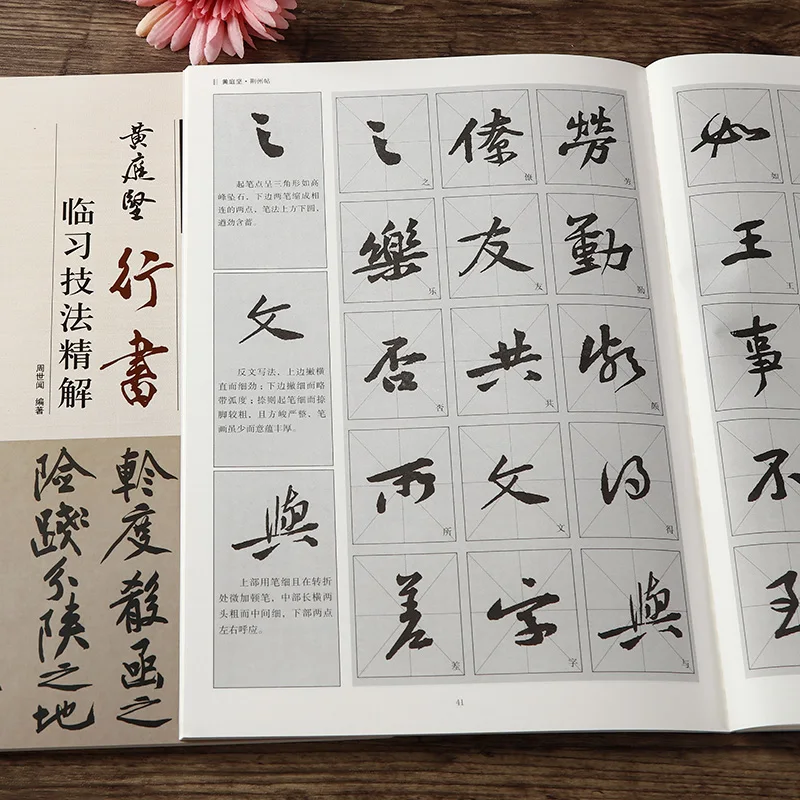 黄庭堅
行書
临习技法精解
周世闻 编著
度
函之
險踐
陝之地
黄庭坚·荆州帖
之
起笔点呈三角形如高
峰坠石，下边两笔缩成相
连的两点，笔法上方下圆，
遒劲含蓄。
文
反文写法，上边撇横
直而细劲；下边撇细而略
带弧度；捺则起笔细而捺
脚较粗，且方峻严整，笔
画虽少而意蕴丰厚。
與
上部用笔细且在转折
处微加顿笔，中部长横两
头粗而中间细，下部两点
左右呼应。
之 僚 勞
之 僚 劳
樂 友 勤
乐 友 勤
否 共
否 共
所 文 得
所 文 得
差 字 與
差 字 与
41
如
如
王
王
事
不